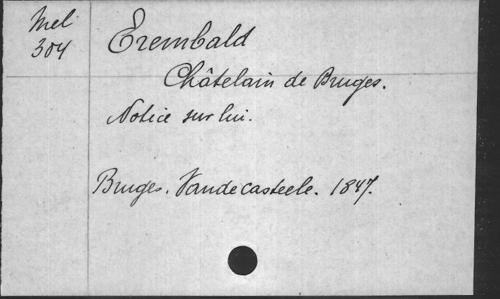 Mel
304
Erembald
Châtelain de Bruges.
Notice sur lui.
Bruges. Vandecasteele. 1847.